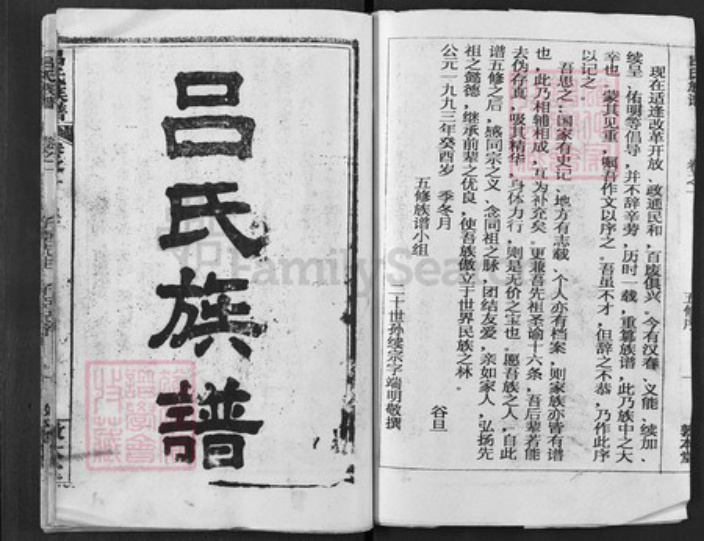 现在适逢改革开放、政通民和，百废俱兴。今有汉春、义能、续加、
续呈、佑明等倡导，并不辞辛劳，历时一载，重篡族谱，此乃族中之大
幸也。蒙其见重，嘱吾作文以序之。吾虽不才，但辞之不恭，乃作此序
以记之。
吾思之：国家有史记、地方有志载、个人亦有档案，则家族亦皆有谱
也，此乃相辅相成，互为补充矣。更兼吾先祖圣谕十六条，吾后辈若能
去伪存真，吸其精华，身体力行，则是无价之宝也。愿吾族之人，自此
谱五修之后，感同宗之义、念同祖之脉，团结友爱，亲如家人，弘扬先
祖之懿德，继承前辈之优良，使吾族傲立于世界民族之林。
公元一九九三年癸酉岁 季冬月 谷旦
五修族谱小组
二十世孙续宗字端明敬撰
五修序
敦本堂
吕氏族譜
吕氏族譜
FamilySearch